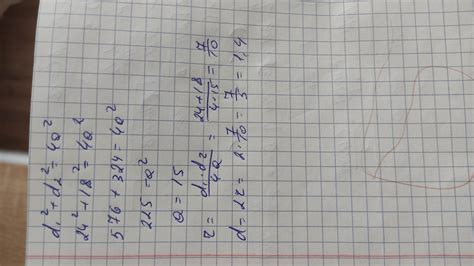 d₁² + d₂² = 4a²
24² + 18² = 4a²
576 + 324 = 4a²
225 = a²
a = 15
r = d₁·d₂/4a = 24+18/4·15 = 7/10
d = 2r = 2·7/10 = 7/5 = 1,4